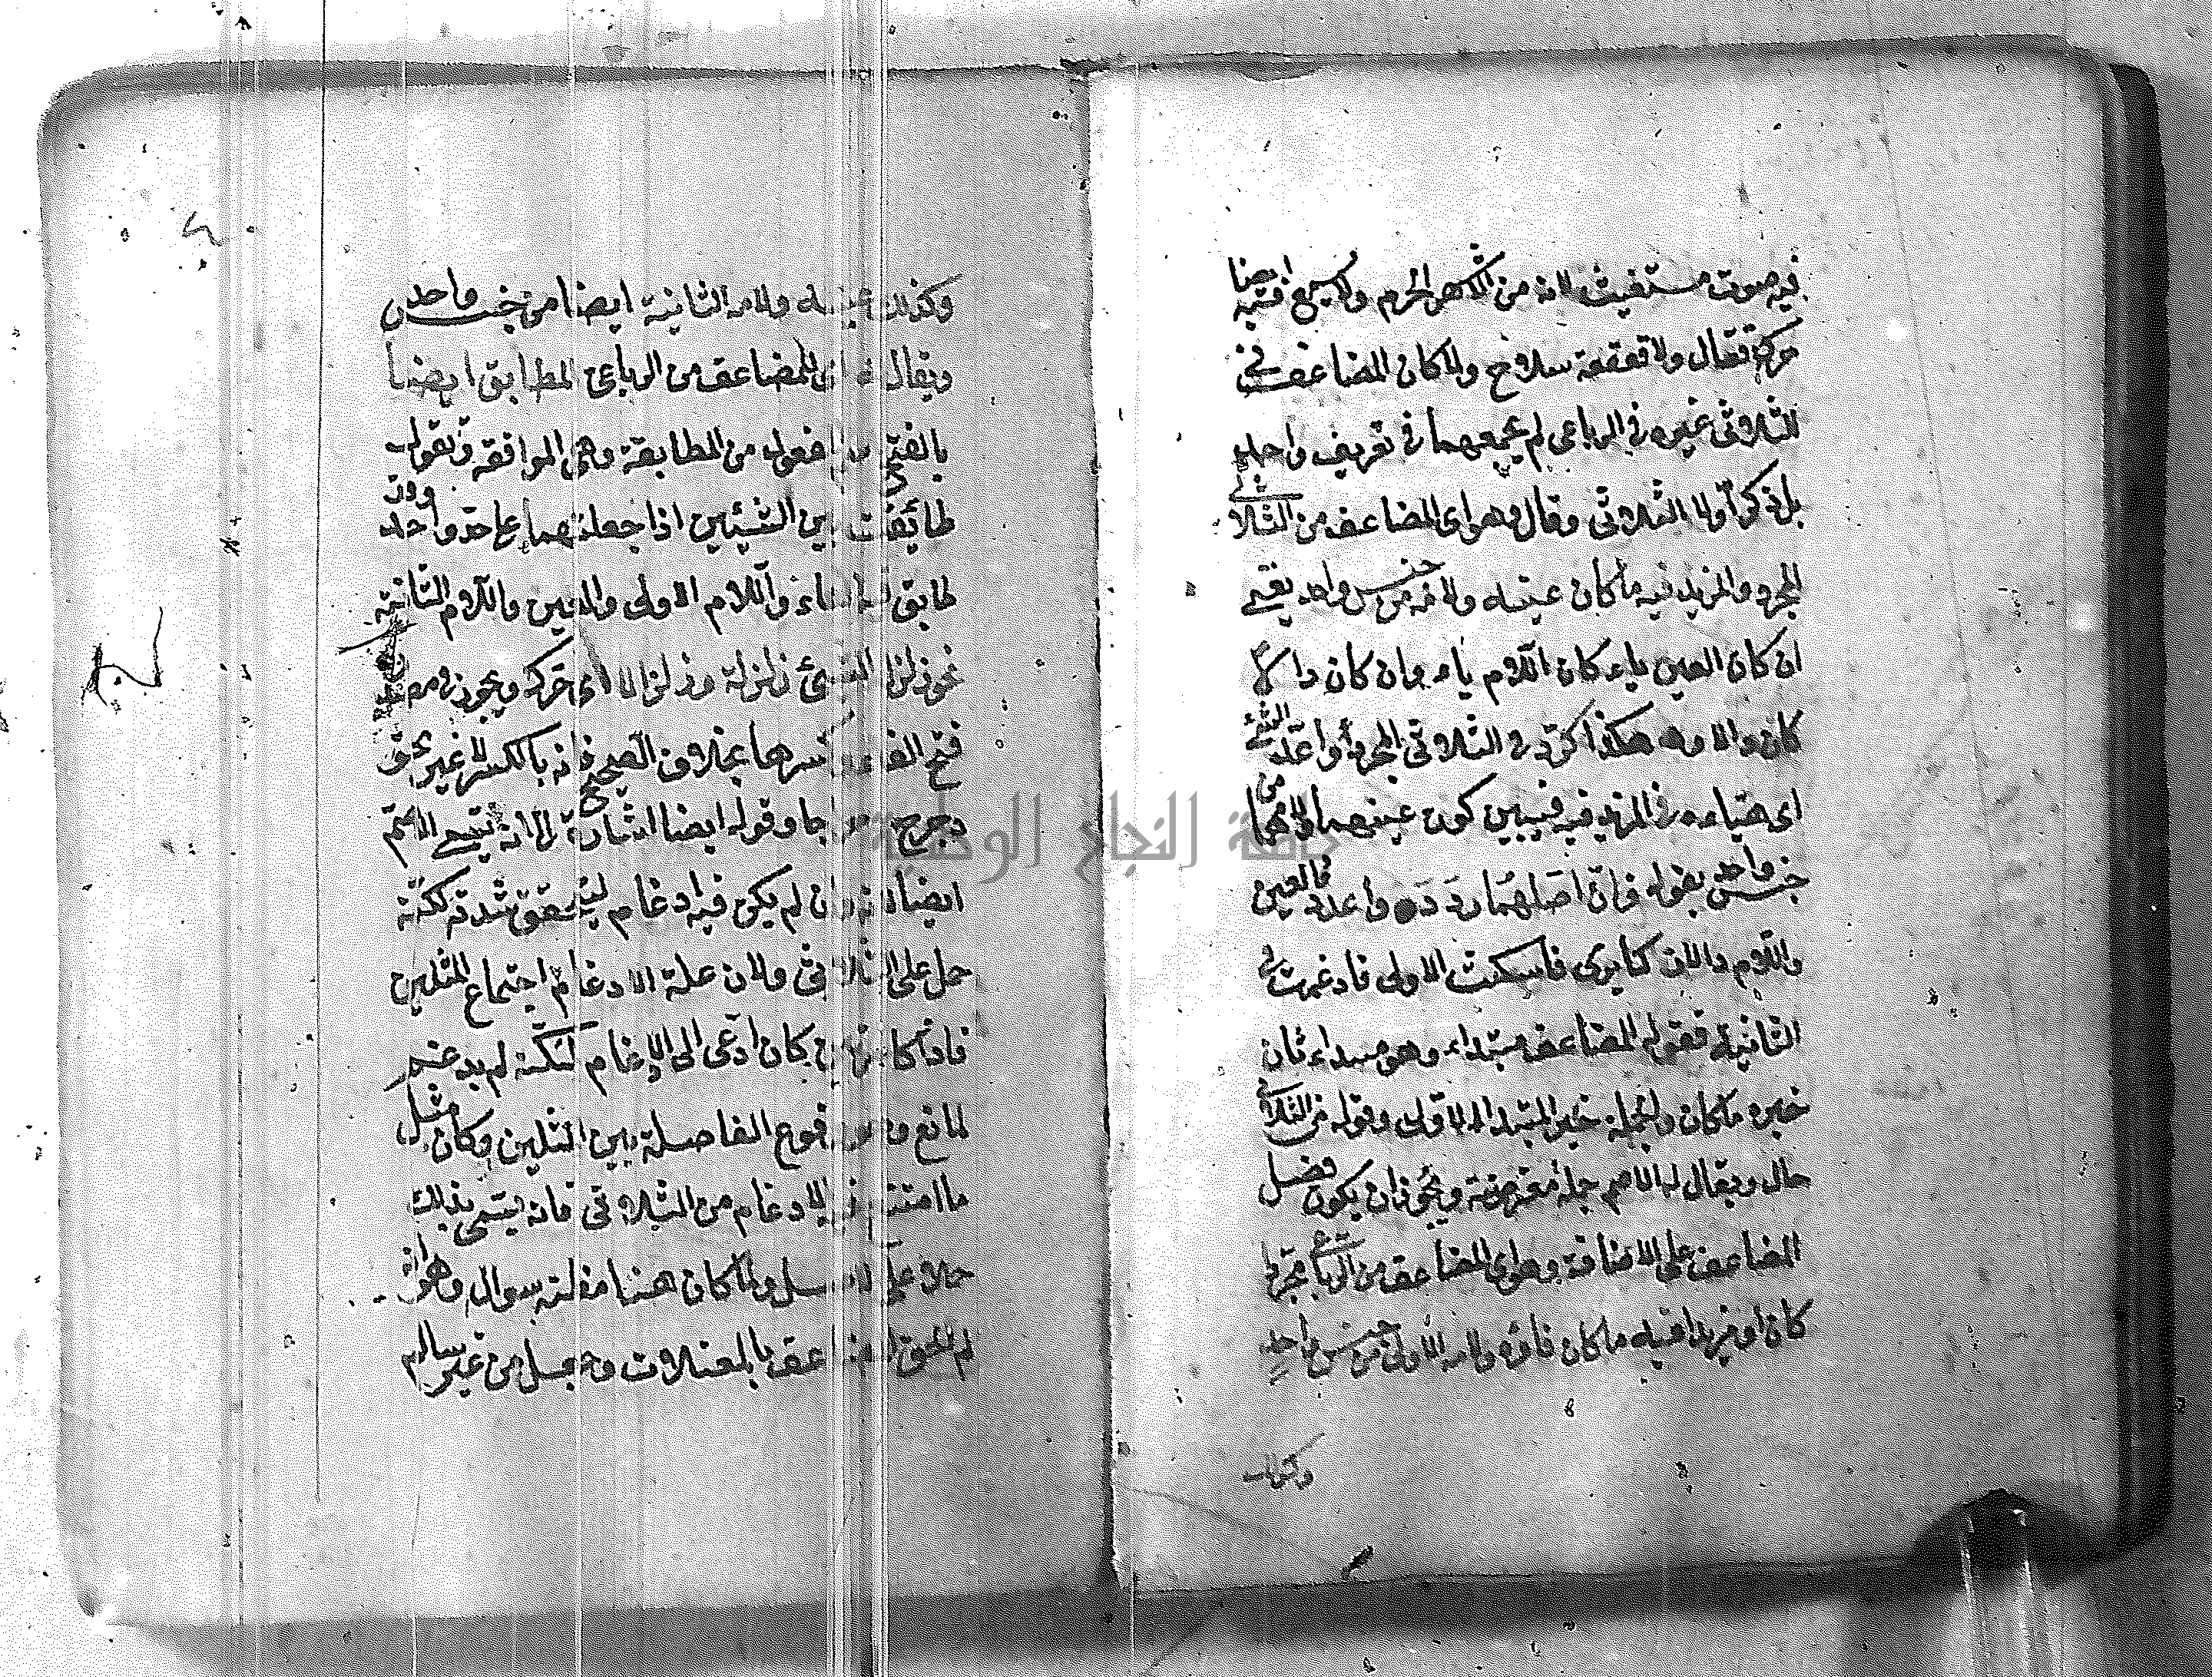 فيه صوت مستغيث لانه من الأشهر الحرم ولا يسمع فيه ايضا
حركة قتال ولا قعقعة سلاح ولما كان المضاعف في
الثلاثي غيره في الرباعي لم يجمعهما في تعريف واحد
بل ذكر أولا الثلاثي وقال وهو اي المضاعف من الثلاثي
المجرد والمزيد فيه ما كان عينه ولامه من جنس واحد يعني
ان كان العين ياء كان اللام ياء وان كان دالا
كان دالا وهكذا كرد في الثلاثي المجرد وأعد الشئ
اي هيأه في المزيد فيه فيبين كون عينهما ولامهما من
جنس واحد بقوله فان اصلهما ردد وأعدد فالعين
واللام دالان كما يرى فاسكنت الاولى فادغمت في
الثانية فقوله المضاعف مبتداء وهو مبتداء ثان
خبره ما كان والجملة خبر المبتداء الاول وقوله من الثلاثي
حال ويقال له الاصم جملة معترضة ويجوز ان يكون فصل
المضاعف على الاضافة وهو اي المضاعف من الرباعي مجردا
كان او مزيدا فيه ما كان فاؤه ولامه الاولى من جنس واحد
وكذلك
وكذلك عينه ولامه الثانية ايضا من جنس واحد
ويقال له اي للمضاعف من الرباعي المطابق ايضا
بالفتح مفعول من المطابقة وهي الموافقة وتقول
طابقت بين الشيئين اذا جعلتهما على حذو واحد وقد
طابق الفاء واللام الاولى والعين واللام الثانية
نحو زلزل الشئ زلزلة وزلزالا اي حركه ويجوز في مصدره
فتح الفاء وكسرها بخلاف الصحيح فانه بالكسر لا غير نحو
دحرج دحراجا وقوله ايضا اشارة الى انه يسمى الاصم
ايضا لانه وان لم يكن فيه ادغام ليتحقق شدته لكنه
حمل على الثلاثي ولان علة الادغام اجتماع المثلين
فاذا كان مرتين كان ادعى الى الادغام لكنه لم يدغم
لمانع وهو وقوع الفاصلة بين المثلين وكان مثل
ما امتنع فيه الادغام من الثلاثي فانه يسمى بذلك
حملا على الاصل ولما كان هنا مظنة سوال وهو انه
لم الحق المضاعف بالمعتلات وجعل من غير سالم
جامعة النجاح الوطنية